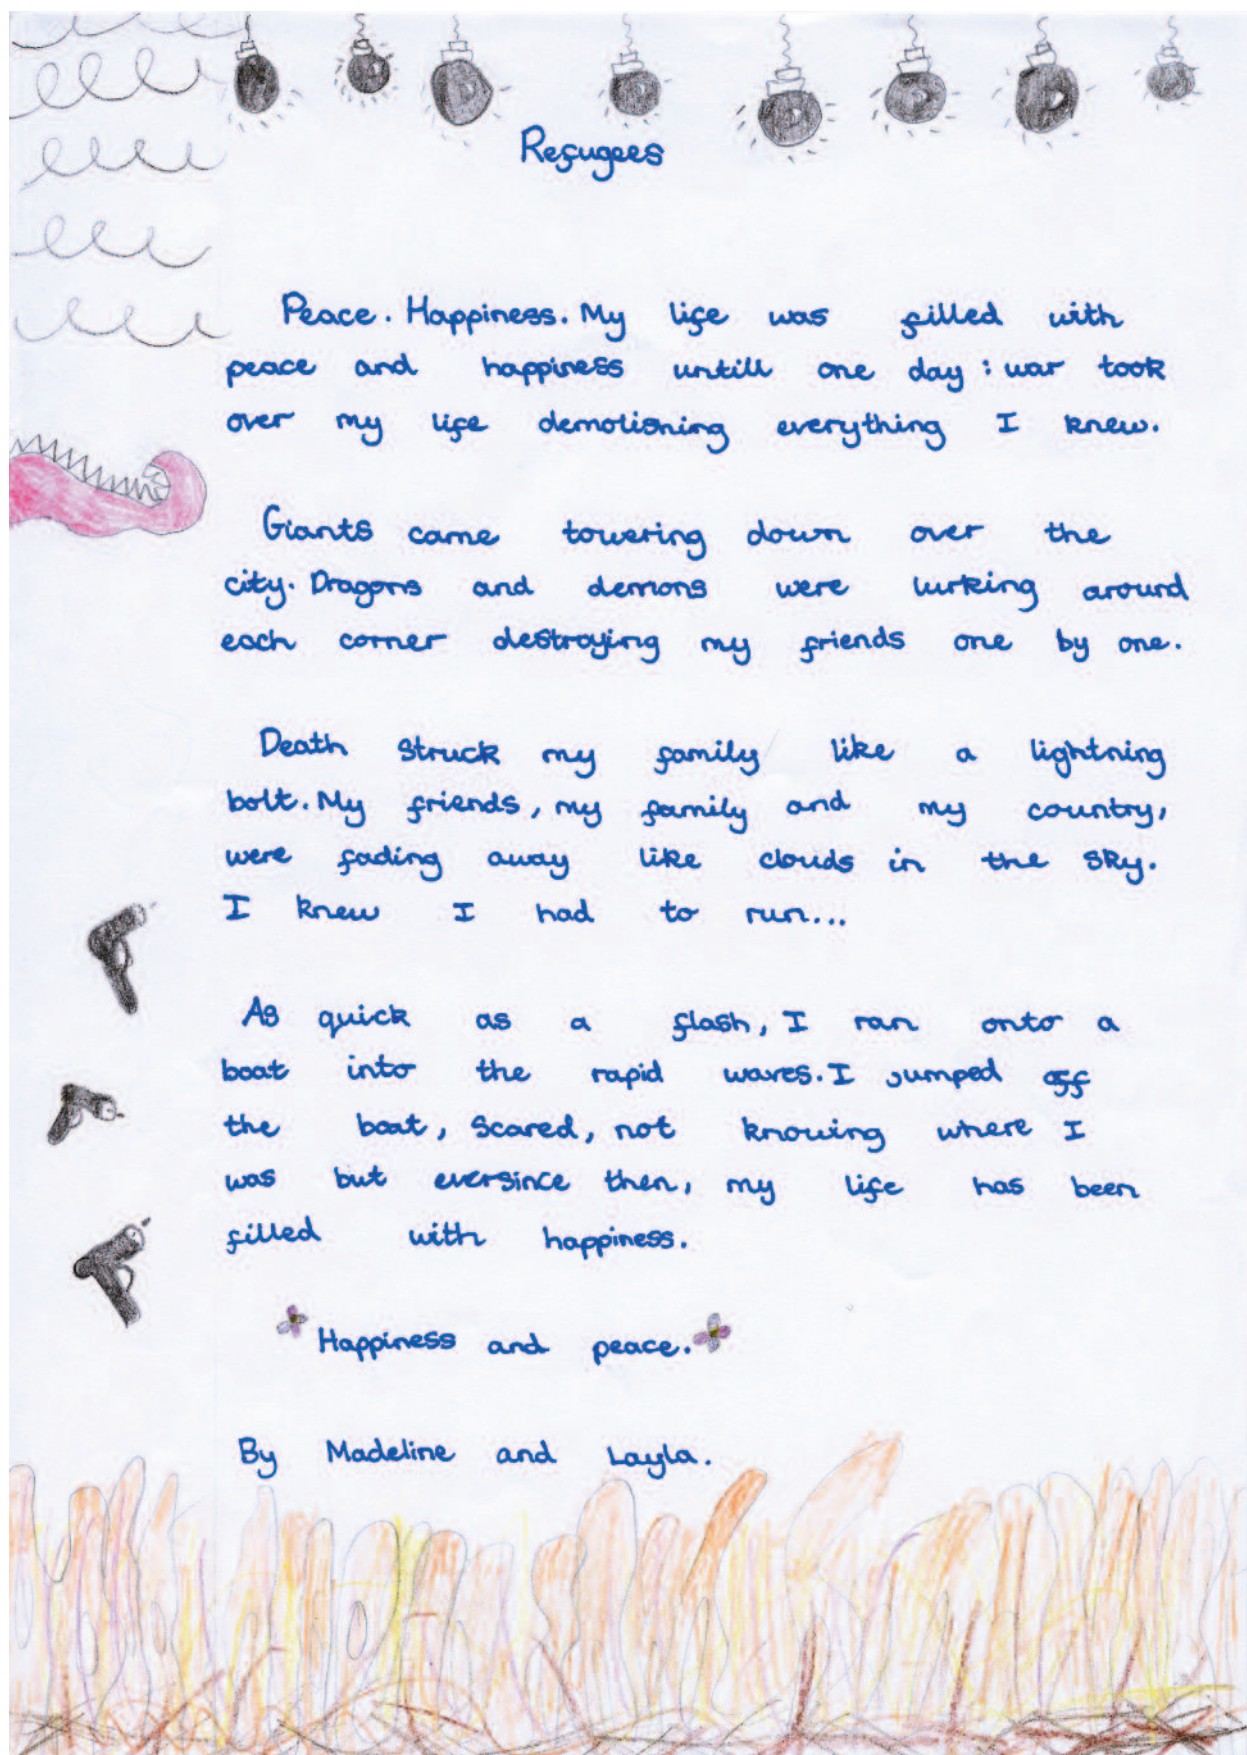 Refugees
Peace. Happiness. My life was filled with
peace and happiness untill one day : war took
over my life demolishing everything I knew.
Giants came towering down over the
city. Dragons and demons were lurking around
each corner destroying my friends one by one.
Death struck my family like a lightning
bolt. My friends, my family and my country,
were fading away like clouds in the sky.
I knew I had to run...
As quick as a flash, I ran onto a
boat into the rapid waves. I jumped off
the boat, scared, not knowing where I
was but eversince then, my life has been
filled with happiness.
Happiness and peace.
By Madeline and Layla.